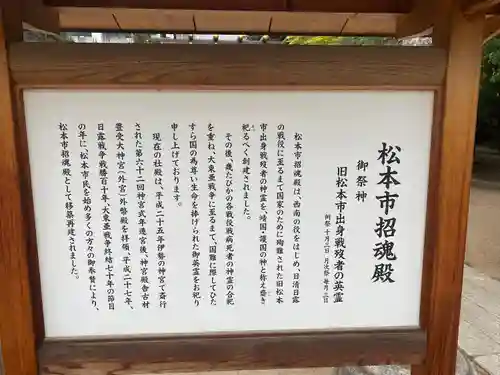 松本市招魂殿
御祭神
旧松本市出身戦歿者の英霊
例祭 十月二日 月次祭 毎月二日
松本市招魂殿は、西南の役をはじめ、日清日露
の戦役に至るまで国家のために殉難された旧松本
市出身戦歿者の神霊を、靖国・護国の神と称え齋き
祀るべく創建されました。
その後、幾たびかの各戦役戦病死者の神霊の合祀
を重ね、大東亜戦争に至るまで、国難に際してひた
すら国の為尊い生命を捧げられた御英霊をお祀り
申し上げております。
現在の社殿は、平成二十五年伊勢の神宮で斎行
された第六十二回神宮式年遷宮後、神宮殿舎古材
豊受大神宮(外宮)外幣殿を拝領、平成二十七年、
日露戦争戦勝百十年、大東亜戦争終結七十年の節目
の年に、松本市民を始め多くの方々の御奉賛により、
松本市招魂殿として移築再建されました。